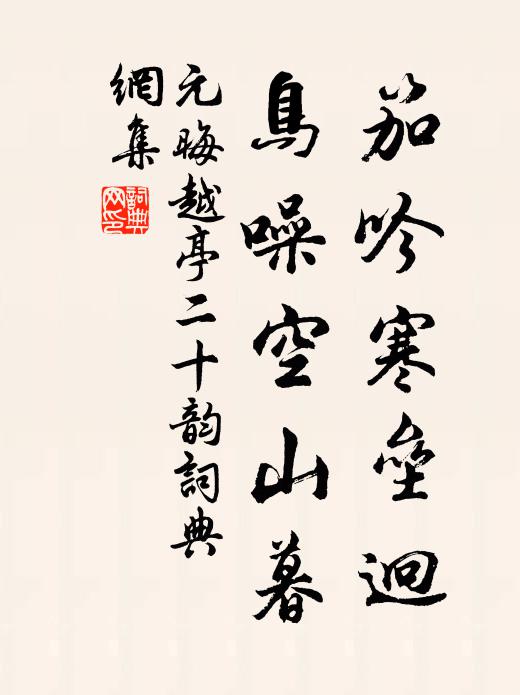 笳吟寒壘迴
鳥噪空山暮
元晦越亭二十韵詞典
網集
詞典網印